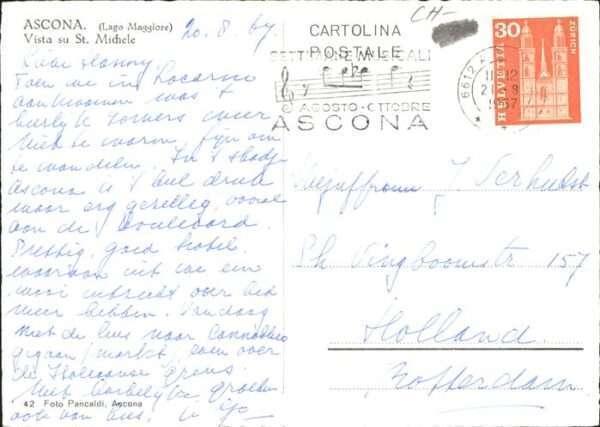 ASCONA. (Lago Maggiore)
Vista su St. Michele
20.8.67.
CH-
CARTOLINA
POSTALE
SETTIMANE MUSICALI
AGOSTO-OTTOBRE
ASCONA
6612
1967
30
HELVETIA
ZÜRICH
Toen we in Locarno
aankwamen was t
heerlijk zomers weer
niet te warm, fijn om
te wandelen. In t stadje
Ascona is t heel druk
maar erg gezellig, vooral
aan de boulevard.
Prettig, goed hotel.
waaruit we een
mooi uitzicht over het
meer hebben. Vandaag
met de bus naar Cannobio
gegaan (markt) even over
de Italiaanse grens.
Met hartelijke groeten
ook van
Mejuffrouw J. Verhulst
Ph Vingboomstr 157
Holland
Rotterdam
42 Foto Pancaldi, Ascona